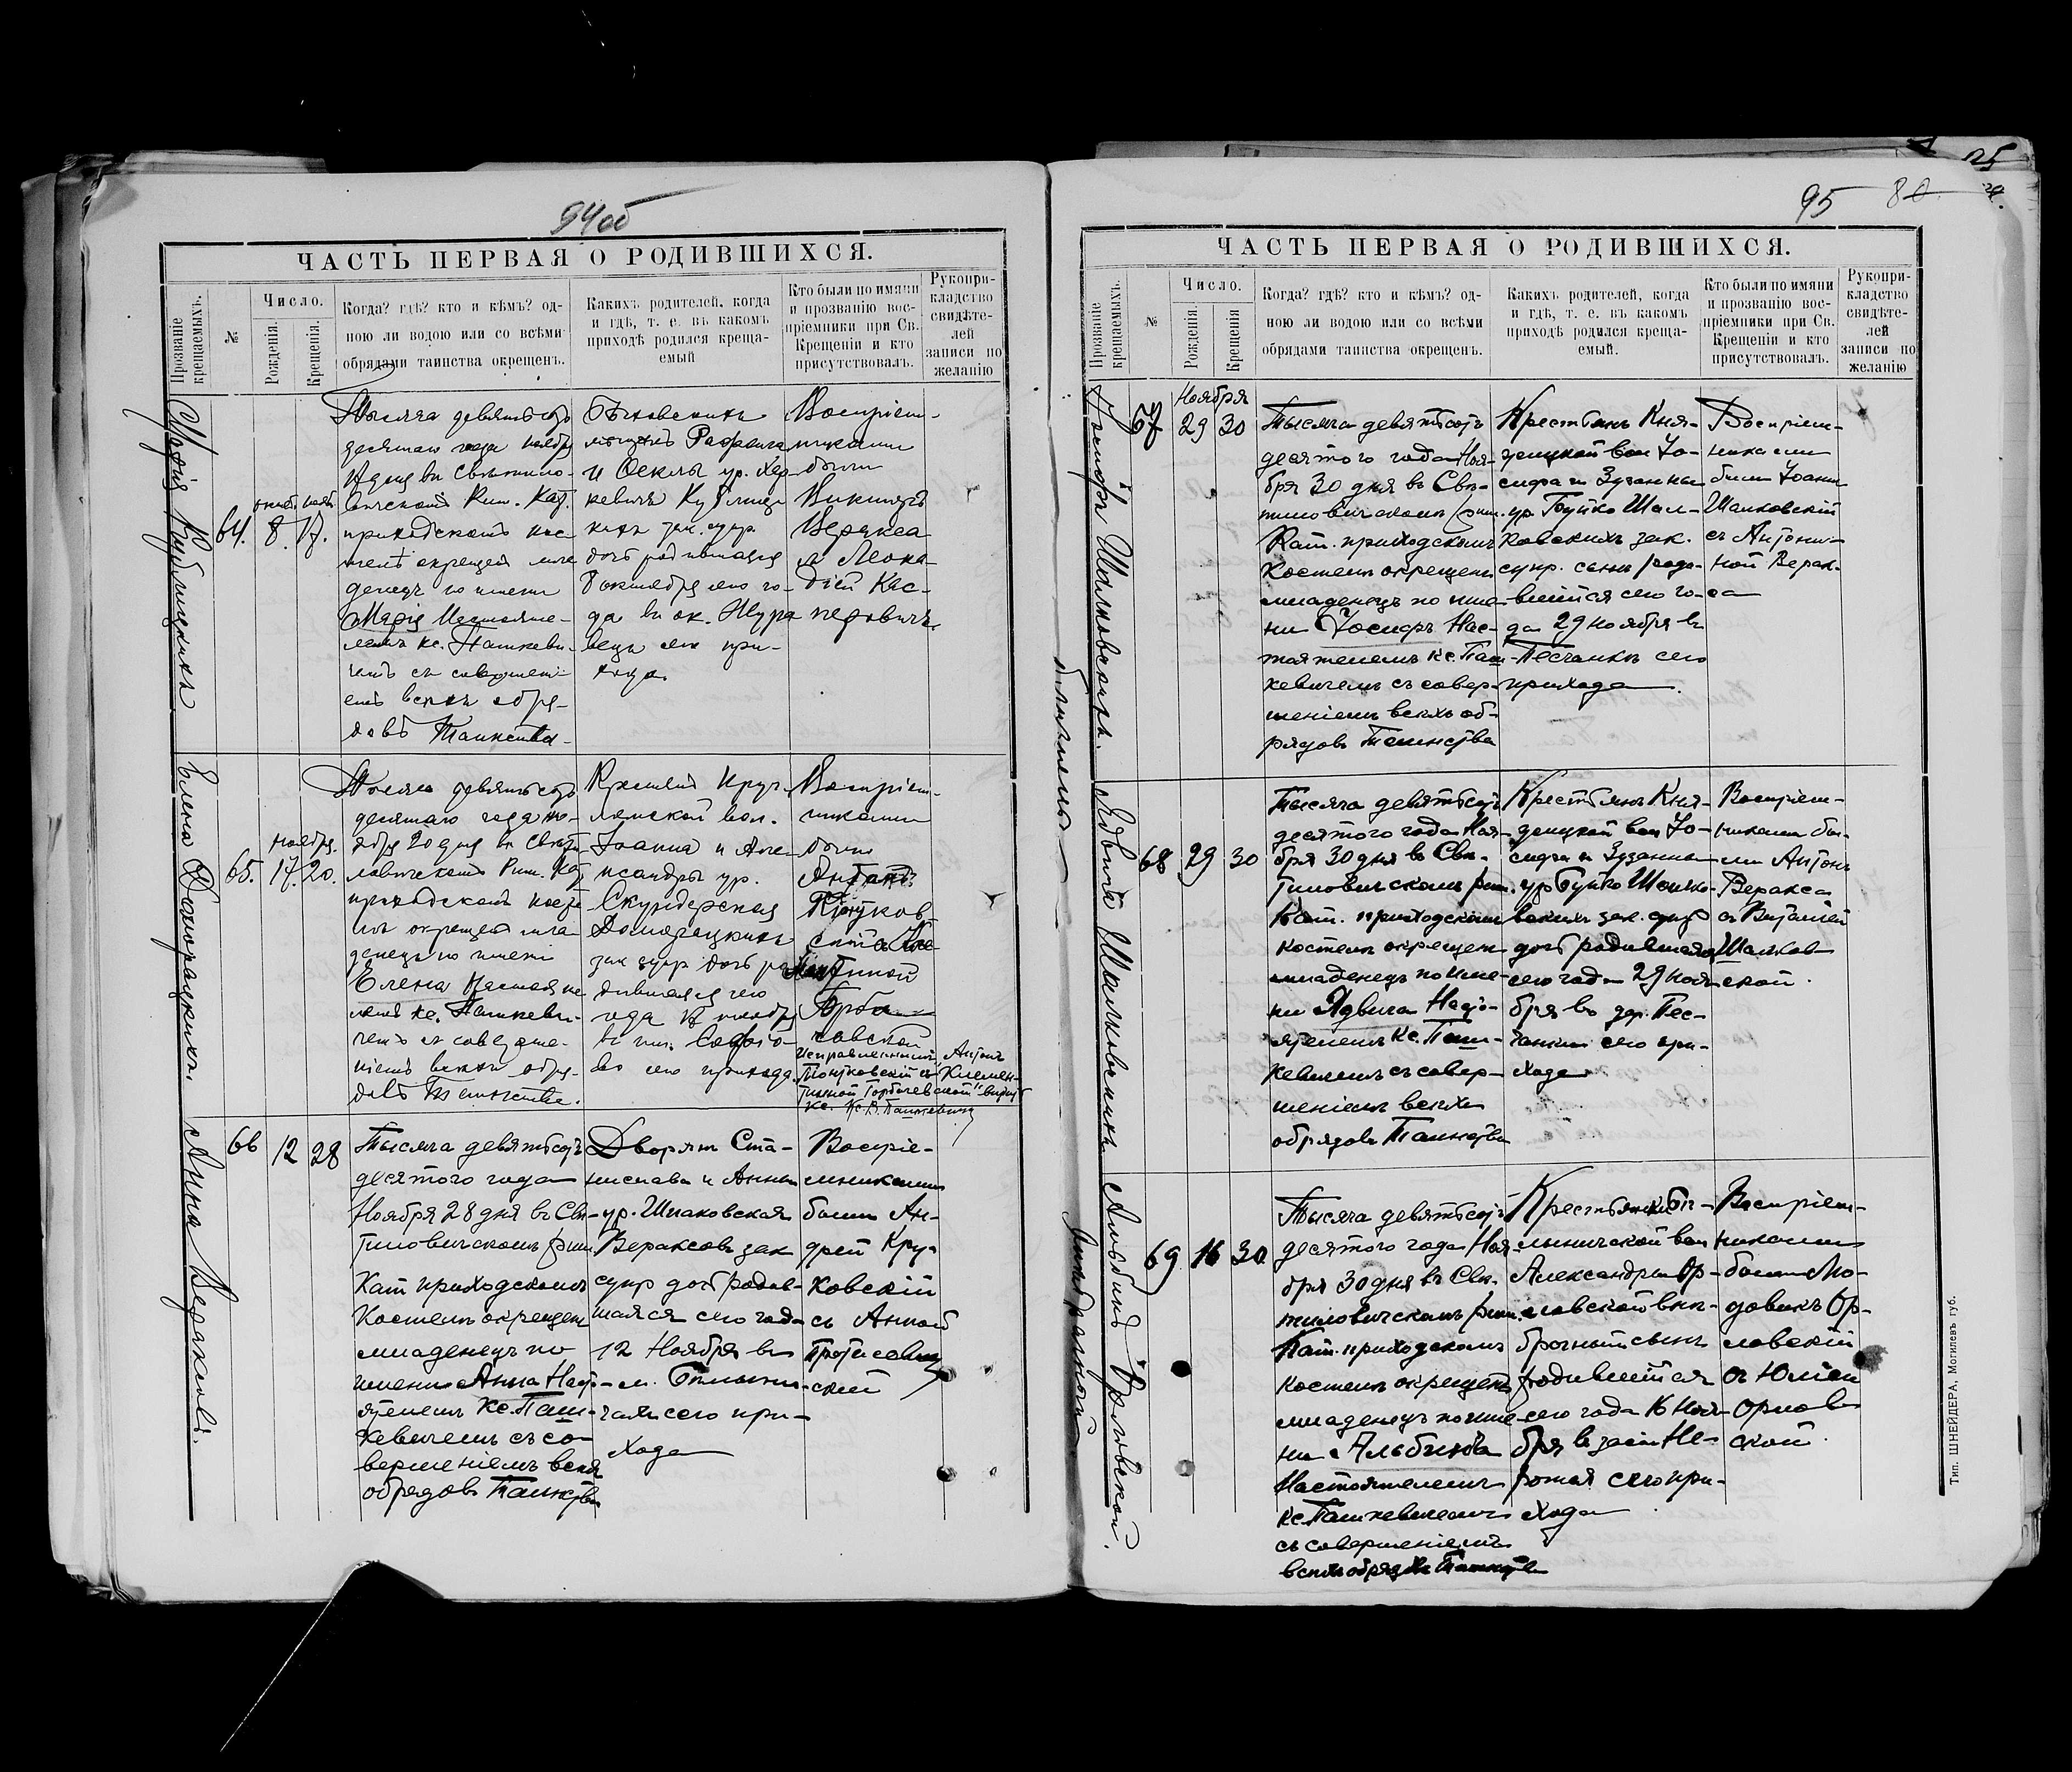 94об
ЧАСТЬ ПЕРВАЯ О РОДИВШИХСЯ.
Прозваніе крещаемыхъ.
№
Число.
Рожденія.
Крещенія.
Когда? гдѣ? кто и кѣмъ? од-
ною ли водою или со всѣми
обрядами таинства окрещенъ.
Какихъ родителей, когда
и гдѣ, т. е. въ какомъ
приходѣ родился креща-
емый
Кто были по имяни
и прозванію вос-
пріемники при Св.
Крещеніи и кто
присутствовалъ.
Рукопри-
кладство
свидѣте-
лей
записи по
желанію
Марія Кублицкихъ
64.
8. 17.
Тысяча девятьсотъ
десятаго года ноября
дня въ Свѣтило-
вичскомъ Рим. Кат.
приходскомъ кос-
телѣ окрещенъ мла
денецъ по имени
Марія Настояте-
лемъ кс. Пашкеви-
чемъ съ совершені-
емъ всѣхъ обря-
довъ Таинства
мѣщанъ Рафаила
и Феклы ур.
Кублиц-
кихъ зак. супр.
дочь родившаяся
8 октября сего го-
да въ ок. Жура
вецъ сего при-
хода.
Воспріем-
никами
были
Викентій
Веракса
съ Леока-
діей Кас-
перовичъ
Елена Доморацкихъ.
65.
ноября.
17. 20.
Тысяча девятьсотъ
десятаго года но-
ября 20 дня въ Свѣти-
ловичскомъ Рим. Кат
приходскомъ косте
лѣ окрещенъ мла
денецъ по имени
Елена Настояте
лемъ кс. Пашкеви-
чемъ съ соверше-
ніемъ всѣхъ обря-
довъ Таинства.
Круг-
лянской вол.
Іоанна и Але-
ксандры ур.
Доморацкихъ
зак супр дочь ро
дившаяся сего
года 17 ноября
сего прихода.
Воспріем-
никами
были
Исправленный „Антонъ
съ Клемен-
тиной Горбачевской" вѣрно
Кс. В. Пашкевичъ
Анна Вераксовъ.
66
12 28
Тысяча девятьсотъ
десятого года
Ноября 28 дня въ Свѣ-
тиловичскомъ рим.
Кат приходскомъ
Костелѣ окрещенъ
младенецъ по
имени Анна Нас-
ятелемъ Кс. Паш-
кевичемъ съ со-
вершеніемъ всѣхъ
обрядовъ Таинства
Дворянъ Ста-
нислава и Анны
ур. Шпаковская
Вераксовъ зак
супр дочь родив-
шаяся сего года
12 Ноября въ
м. Бѣлыни-
чахъ сего при-
хода
Воспріе-
мниками
были Ан-
дрей Кру-
ковскій
съ Анной
Протасевич
ской
95 80
25
ЧАСТЬ ПЕРВАЯ О РОДИВШИХСЯ.
Прозваніе крещаемыхъ.
№
Число.
Рожденія.
Крещенія
Когда? гдѣ? кто и кѣмъ? од-
ною ли водою или со всѣми
обрядами таинства окрещенъ.
Какихъ родителей, когда
и гдѣ, т. е. въ какомъ
приходѣ родился креща-
емый.
Кто были по имяни
и прозванію вос-
пріемники при Св.
Крещеніи и кто
присутствовалъ.
Рукопри-
кладство
свидѣте-
лей
записи по
желанію
Іосифъ Шалковскихъ.
близнецы
67
Ноября
29 30
Тысяча девятьсотъ
десятого года Ноя-
бря 30 дня въ Свѣ-
тиловичскомъ рим.
Кат. приходскомъ
Костелѣ окрещенъ
младенецъ по име-
ни Іосифъ Нас-
тоятелемъ кс. Паш-
кевичемъ съ совер-
шеніемъ всѣхъ об-
рядовъ Таинства
Крестьянъ Кня-
жицкой вол Іо-
сифа и Зузанны
ур. Буйко Шал-
ковскихъ зак.
супр. сынъ роди-
вшійся сего го-
да 29 ноября въ
Песчанкѣ сего
прихода.
Воспріем-
никами
были Іоаннъ
Шалковскій
съ Антони-
ной Верак-
са
Ядвига Шалковскихъ
68 29 30
Тысяча девятьсотъ
десятого года Ноя-
бря 30 дня въ Свѣ-
тиловичскомъ рим.
Кат. приходскомъ
костелѣ окрещенъ
младенецъ по име-
ни Ядвига Насто-
ятелемъ Кс. Паш-
кевичемъ съ совер-
шеніемъ всѣхъ
обрядовъ Таинства
Крестьянъ Кня-
жицкой вол Іо-
сифа и Зузанны
ур Буйко Шалко-
вскихъ зак. супр
дочь родившаяся
сего года 29 ноя-
бря въ дер. Пес-
чанкѣ сего при-
хода
Воспріем-
никами бы-
ли Антонъ
Веракса
съ Виталіей
Шалков
ской.
Альбинъ Орловской.
69 16 30
Тысяча девятьсотъ
десятого года Ноя-
бря 30 дня въ Свѣ-
тиловичскомъ рим.
Кат. приходскомъ
костелѣ окрещенъ
младенецъ по име-
ни Альбинъ
Настоятелемъ
кс. Пашкевичемъ
съ совершеніемъ
всѣхъ обрядовъ Таинства
Крестьянки Бѣ-
лыничской вол
Александры Ор-
ловской внѣ-
брачный сынъ
родившійся
сего года 16 ноя-
бря въ
сего при-
хода
Воспріем-
никами
были Лю-
довикъ Ор-
ловскій
съ Юліей
Орлов
ской.
Тип. ШНЕЙДЕРА, Могилевъ губ.